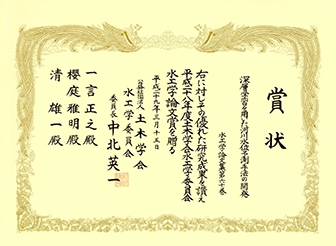 賞状
深層学習を用いた河川水位予測手法の開発
水工学論文集第六十巻
右に対しその優れた研究成果を讃え
平成二十八年度土木学会水工学委員会
水工学論文賞を贈る
平成二十九年三月十五日
公益社団法人 土木学会
水工学委員会
委員長 中北英一
一言正之殿
櫻庭雅明殿
清 雄一殿